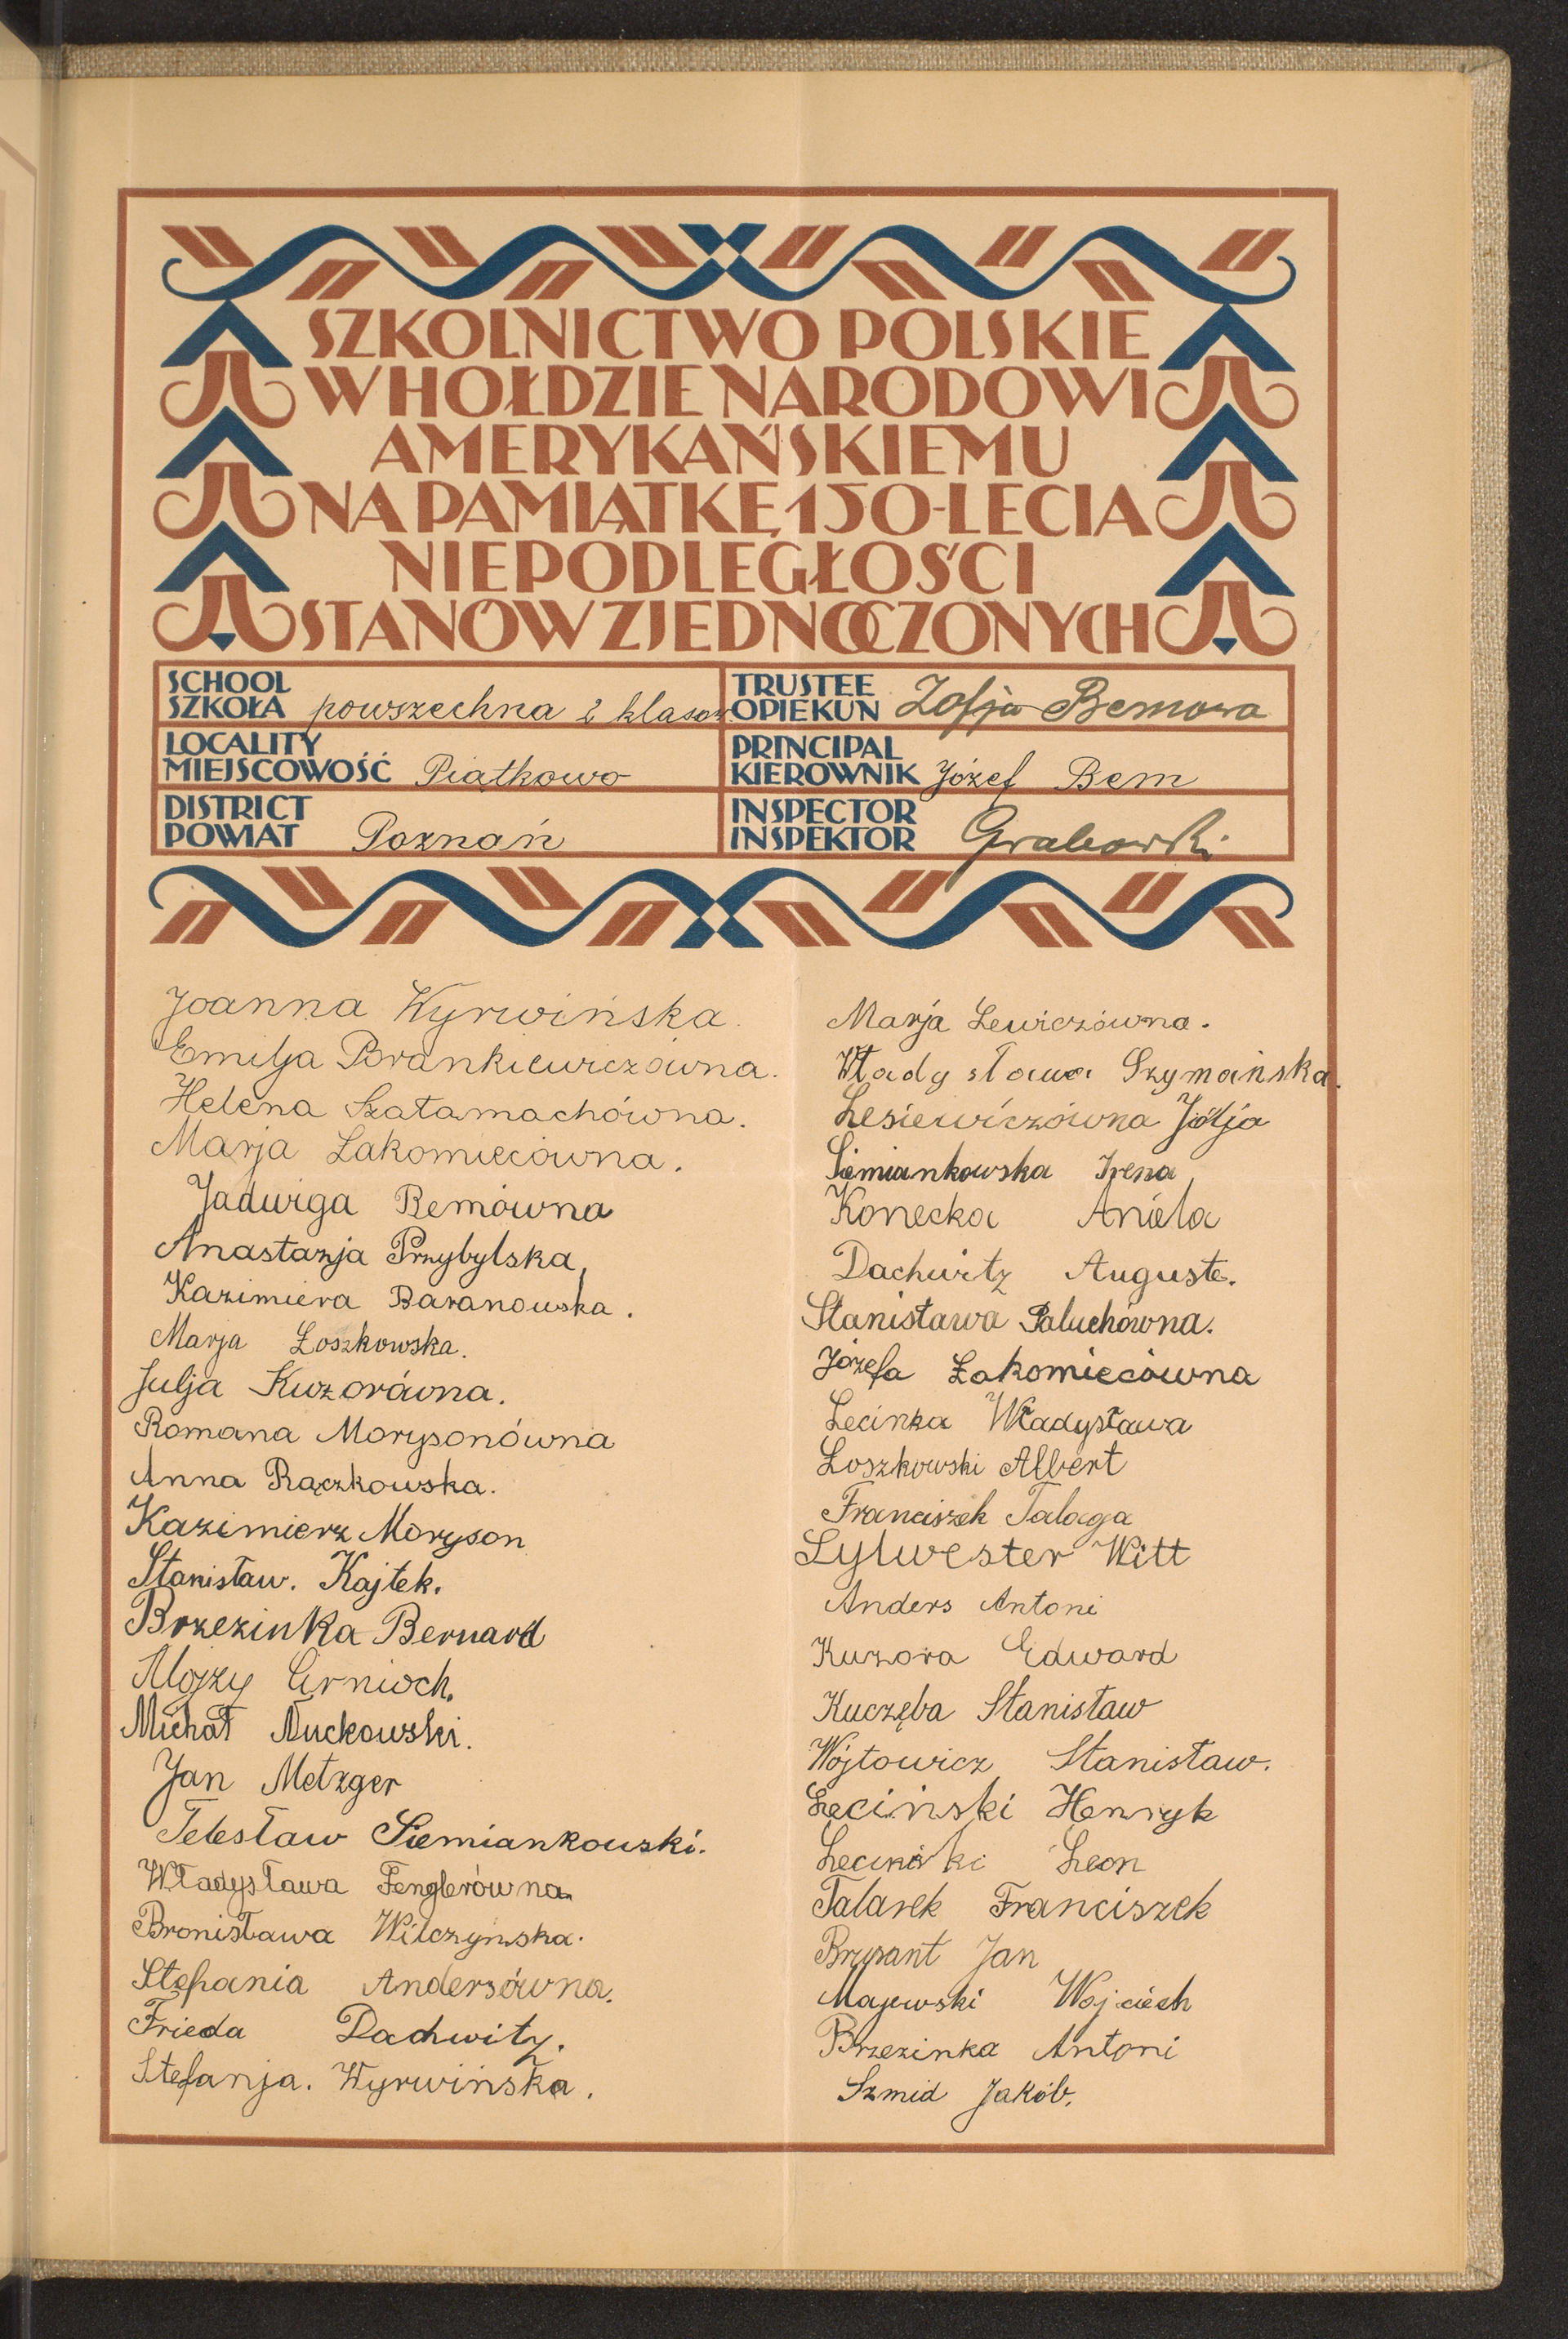 SZKOLNICTWO POLSKIE
W HOŁDZIE NARODOWI
AMERYKAŃSKIEMU
NA PAMIĄTKĘ 150-LECIA
NIEPODLEGŁOŚCI
STANÓW ZJEDNOCZONYCH
SCHOOL
SZKOŁA powszechna 2 klasow
TRUSTEE
OPIEKUN Zofja Bemowa
LOCALITY
MIEJSCOWOŚĆ Piątkowo
PRINCIPAL
KIEROWNIK Józef Bem
DISTRICT
POWIAT Poznań
INSPECTOR
INSPEKTOR Grabowski
Joanna Wyrwińska.
Emilja Brankiewiczówna.
Helena Szatamachówna.
Marja Łakomiecówna.
Jadwiga Bemówna
Anastazja Przybylska,
Kazimiera Baranowska.
Marja Łoszkowska.
Julja Kuzorówna.
Romana Morysonówna
Anna Rączkowska.
Kazimierz Moryson
Stanisław. Kajtek.
Brzezinka Bernard
Alojzy Cirnioch.
Michał Nuckowski.
Jan Metzger
Telesław Siemiankowski.
Władysława Fenglerówna.
Bronisława Wilczyńska.
Stefania Andersówna.
Frieda Dachwitz.
Stefanja. Wyrwińska.
Marja Lewiczówna.
Władysława Szymańska.
Lesiewiczówna Julja
Siemiankowska Irena,
Konecka Aniela
Dachwitz Auguste.
Stanisława Paluchówna.
Józefa Łakomiecówna
Lecinka Władysława
Łoszkowski Albert
Franciszek Talaga
Sylwester Witt
Anders Antoni
Kuzora Edward
Kuczęba Stanisław
Wójtowicz Stanisław.
Łęciński Henryk
Łęciński Leon
Talarek Franciszek
Bryzant Jan
Majewski Wojciech
Brzezinka Antoni
Szmid Jakób.